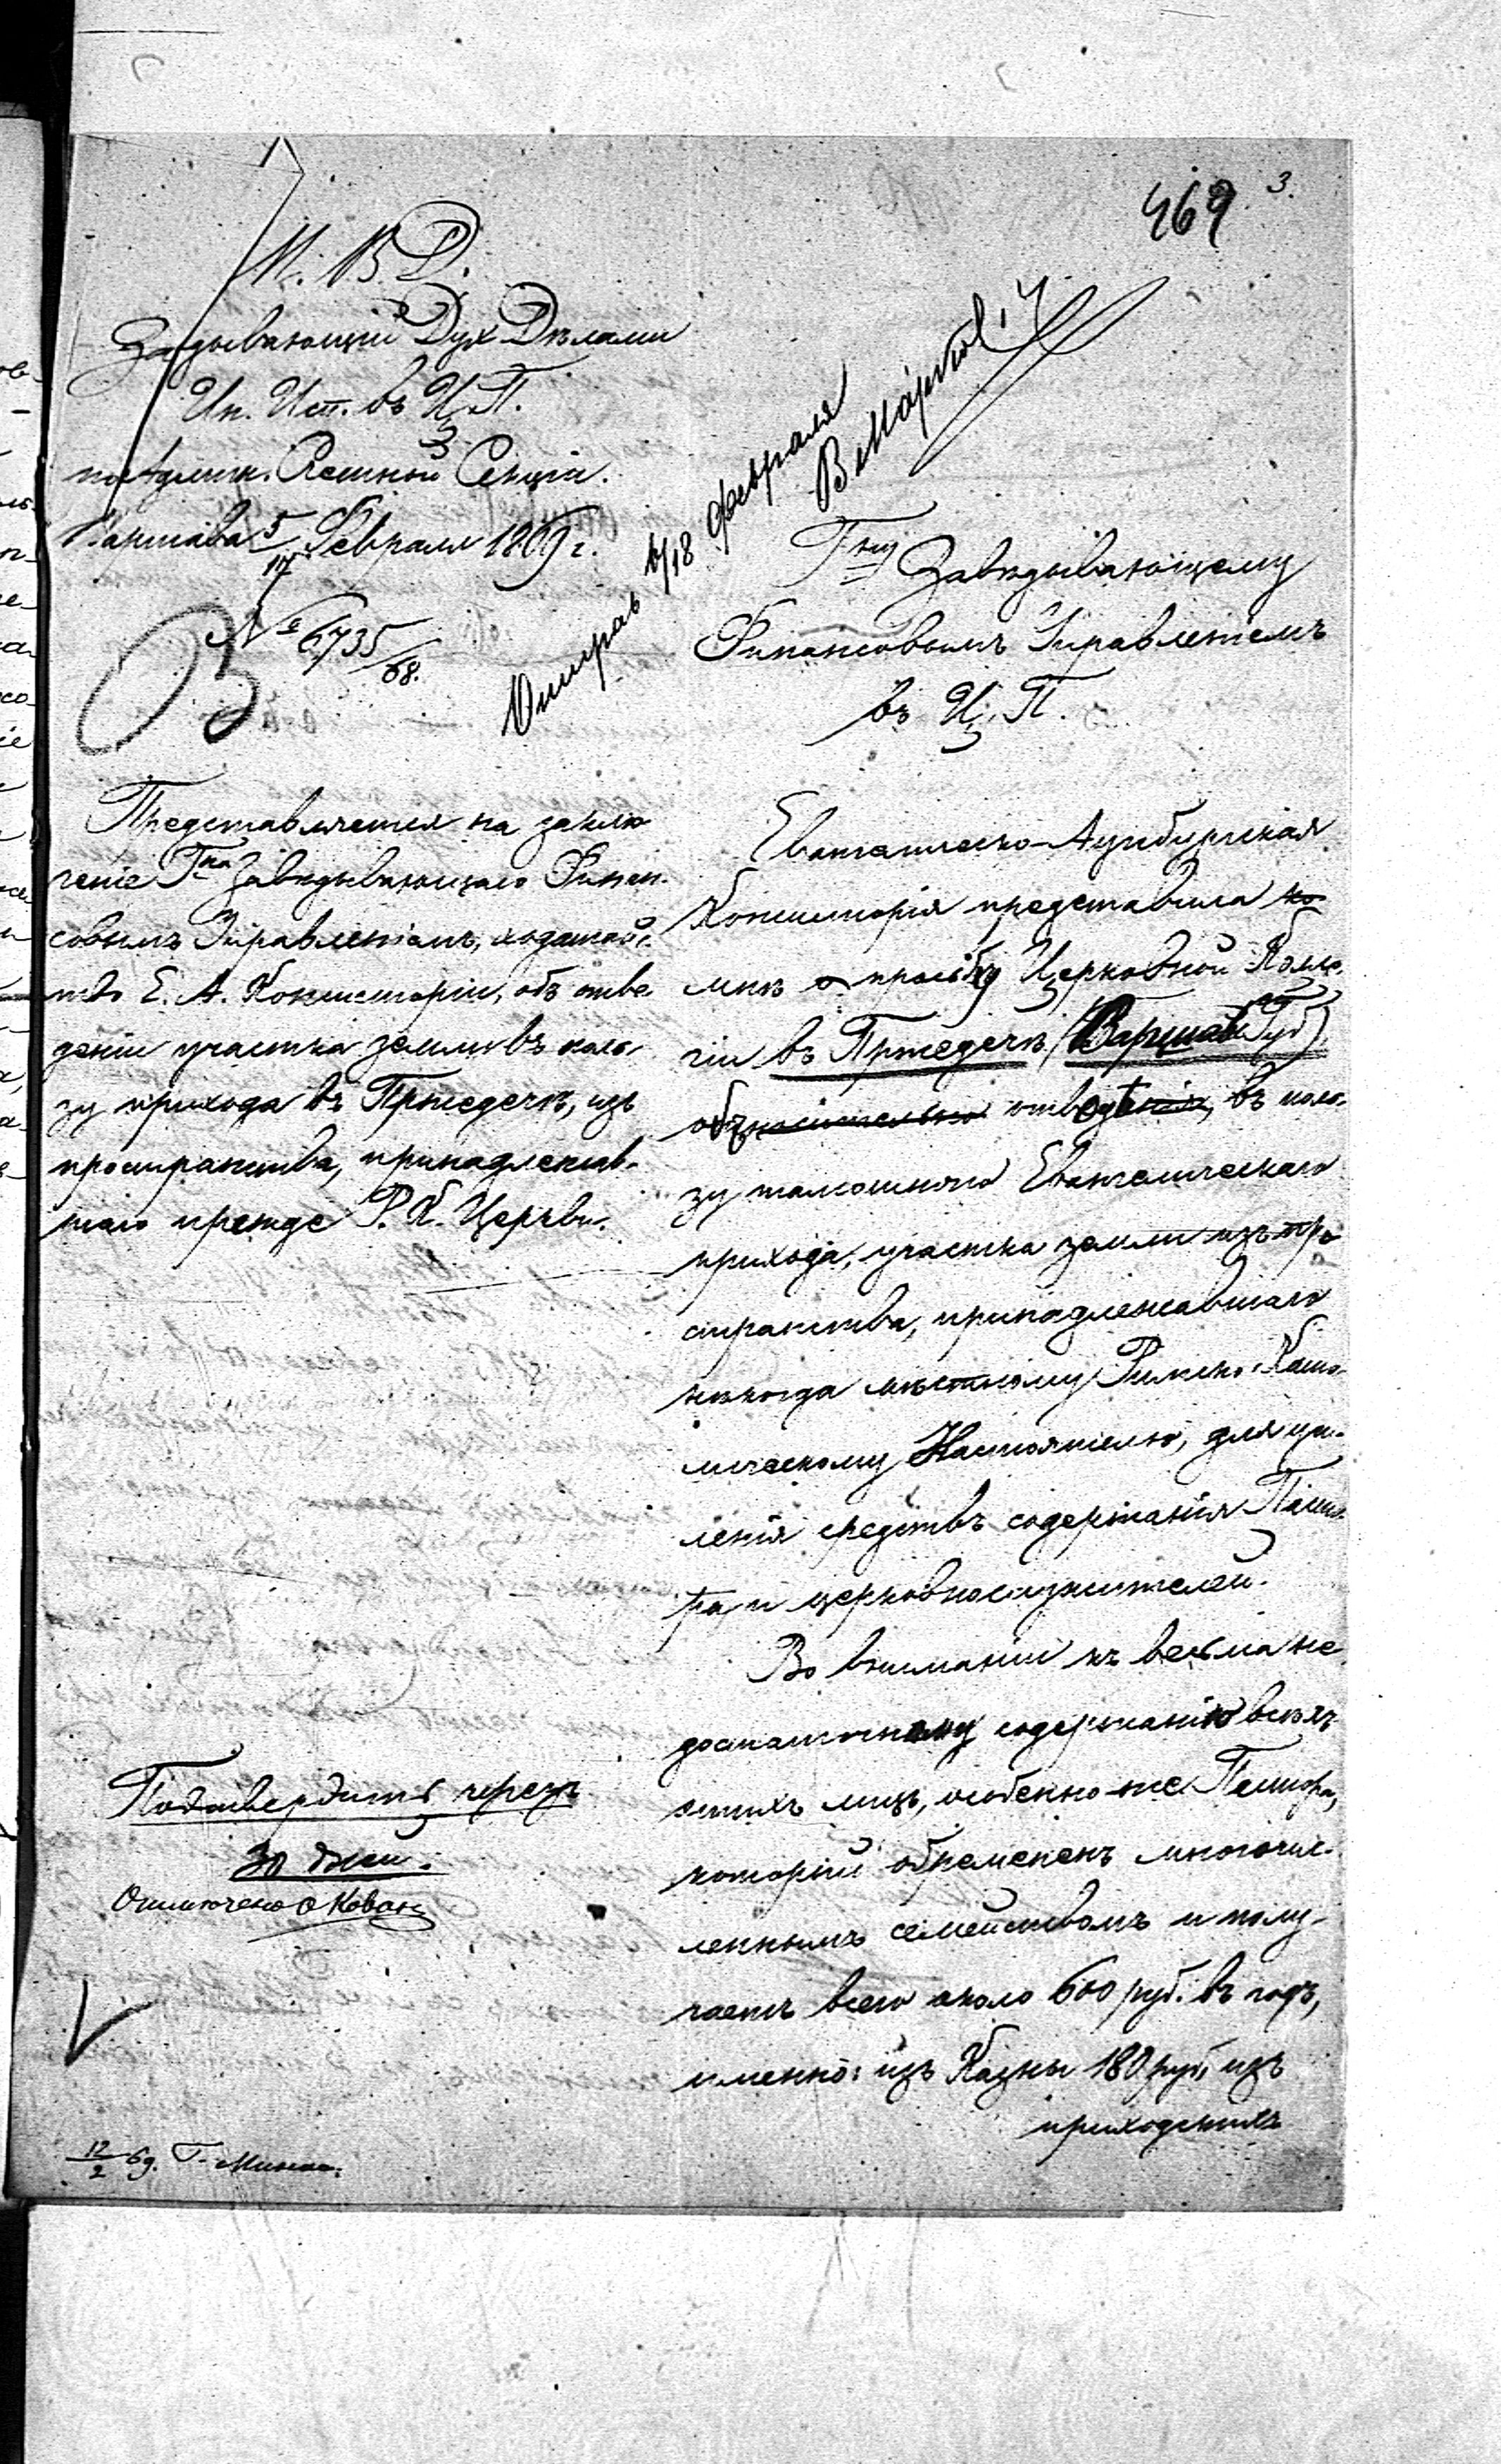 469 3.
М. В. Д.
Завѣдывающій Дух Дѣлами
Ин. Исп. въ Ц. П.
по Админ. Счетной Секціи.
Варшава 5/17 Февраля 1869 г.
№ 6735/68.
Отправ 6/18 февраля
В Марков
Г-ну Завѣдывающему
Финансовымъ Управленіемъ
въ Ц. П.
Представляется на заклю
ченіе Г-на Завѣдывающаго Финан-
совымъ Управленіемъ, ходатайс-
тво Е. А. Консисторіи, объ отве
деніи участка земли въ поль-
зу прихода въ Пржедечѣ, изъ
пространства, принадлежав-
шаго прежде Р. К. Церкви.
Подтвердить черезъ
30 дней.
12/2 69.
Евангелическо-Аугсбургская
Консисторія представила ко
мнѣ просьбу Церковной Колле
гіи въ Пржедечѣ (Варшав Губ)
объ отводѣ, въ поль-
зу тамошняго Евангелическаго
прихода, участка земли изъ про
странства, принадлежавшаго
нѣкогда мѣстному Римско-Като-
лическому Настоятелю, для уси-
ленія средствъ содержанія Пасто-
ра и церковнослужителей.
Во вниманіи къ весьма не
достаточному содержанію всѣхъ
этихъ лицъ, особенно-же Пастора,
который обремененъ многочис-
леннымъ семействомъ и полу-
чаетъ всего около 600 руб. въ годъ,
именно: изъ Казны 180 руб, изъ
приходскихъ